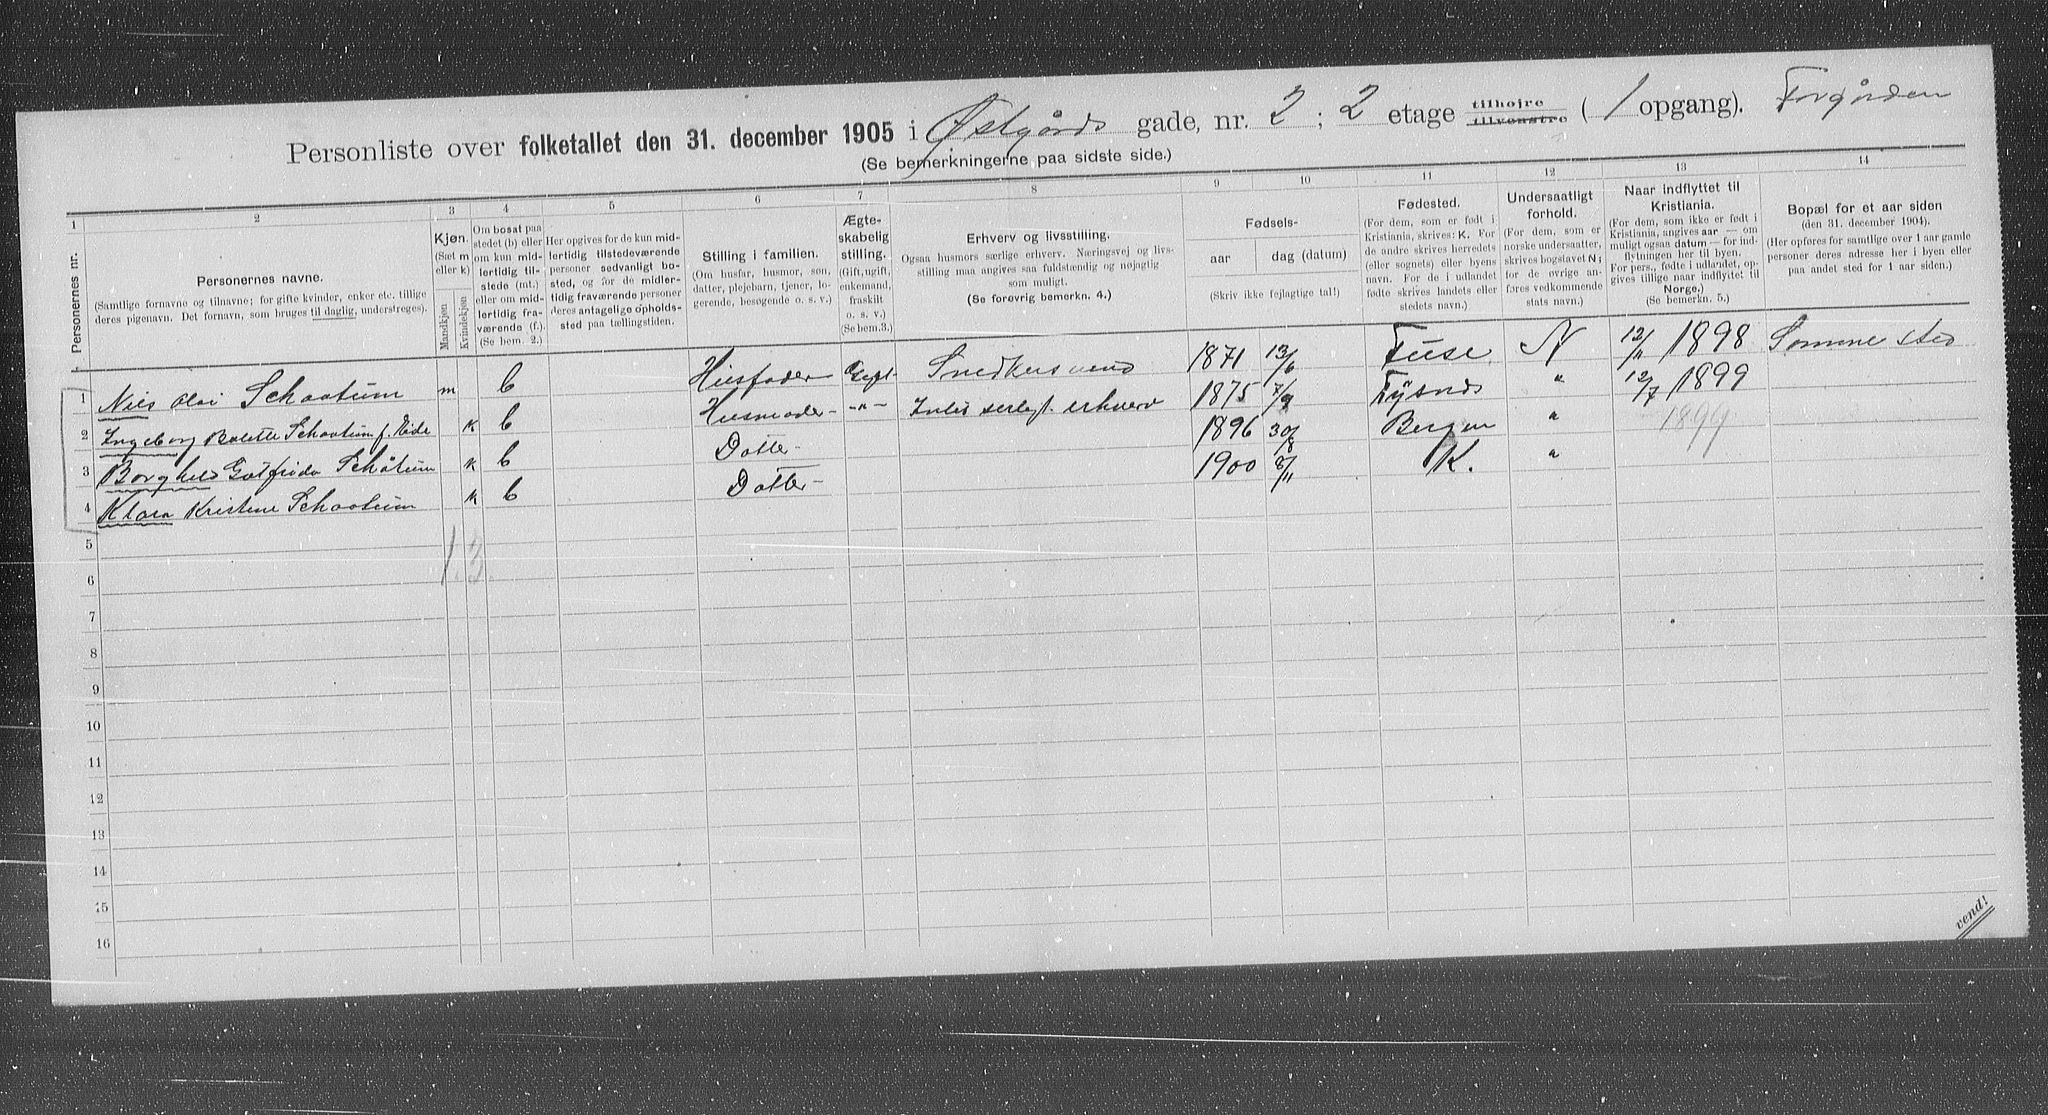 Personliste over folketallet den 31. december 1905 i Østgårds gade, nr. 2 ; 2 etage tilhøjre tilvenstre ( 1 opgang). Forgården
(Se bemerkningerne paa sidste side.)
1 2 3 4 5 6 7 8 9 10 11 12 13 14
Personernes nr.
Personernes navne.
(Samtlige fornavne og tilnavne; for gifte kvinder, enker etc. tillige deres pigenavn. Det fornavn, som bruges til daglig, understreges).
Kjøn.
(Sæt m eller k)
Mandkjøn
Kvindekjøn
Om bosat paa stedet (b) eller om kun midlertidig tilstede (mt.) eller om midlertidig fraværende (f.). (Se bem. 2.)
Her opgives for de kun midlertidig tilstedeværende personer sedvanligt bosted, og for de midlertidig fraværende personer deres antagelige opholdssted paa tællingstiden.
Stilling i familien.
(Om husfar, husmor, søn, datter, plejebarn, tjener, logerende, besøgende o. s. v.)
Ægteskabelig stilling.
(Gift, ugift, enkemand, fraskilt o. s. v.)
(Se bem. 3.)
Erhverv og livsstilling.
Ogsaa husmors særlige erhverv. Næringsvej og livsstilling maa angives saa fuldstændig og nøjagtig som muligt.
(Se forøvrig bemerkn. 4.)
Fødsels-
aar dag (datum)
(Skriv ikke fejlagtige tal!)
Fødested.
(For dem, som er født i Kristiania, skrives: K. For de andre skrives herredets (eller sognets) eller byens navn. For de i udlandet fødte skrives landets eller stedets navn.)
Undersaatligt forhold.
(For dem, som er norske undersaatter, skrives bogstavet N; for de øvrige anføres vedkommende stats navn.)
Naar indflyttet til Kristiania.
(For dem, som ikke er født i Kristiania, angives aar — om muligt ogsaa datum — for indflytningen her til byen. For pers., fødte i udlandet, opgives tillige naar indflyttet til Norge.)
(Se bemerkn. 5.)
Bopæl for et aar siden
(den 31. december 1904).
(Her opføres for samtlige over 1 aar gamle personer deres adresse her i byen eller paa andet sted for 1 aar siden.)
1 Nils Olai Schaatum m b Husfader Gift Snedkersvend 1871 13/6 Fuse N 12/11 1898 Samme sted
2 Ingeborg Bolette Schaatum f. Eide k b Husmoder -"- Intet serlegt erhverv 1875 7/9 Tysnes " 12/7 1899
3 Borghild Gotfrida Schåtum k b Datter 1896 30/8 Bergen " 1899
4 Klara Kristine Schaatum k b Datter 1900 8/11 K. "
5
1. 3.
6
7
8
9
10
11
12
13
14
15
16
vend!